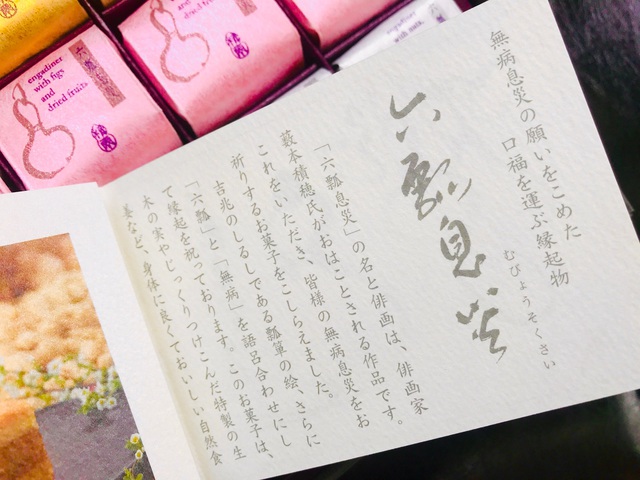 engadiner
with figs
and
dried fruits
and
dried fruits
engadiner
無病息災の願いをこめた
口福を運ぶ縁起物
むびょうそくさい
六瓢息災
「六瓢息災」の名と俳画は、俳画家
藪本積穂氏がおはことされる作品です。
これをいただき、皆様の無病息災をお
祈りするお菓子をこしらえました。
吉兆のしるしである瓢箪の絵、さらに
「六瓢」と「無病」を語呂合わせにし
て縁起を祝っております。このお菓子は、
木の実やじっくりつけこんだ特製の生
姜など、身体に良くておいしい自然食